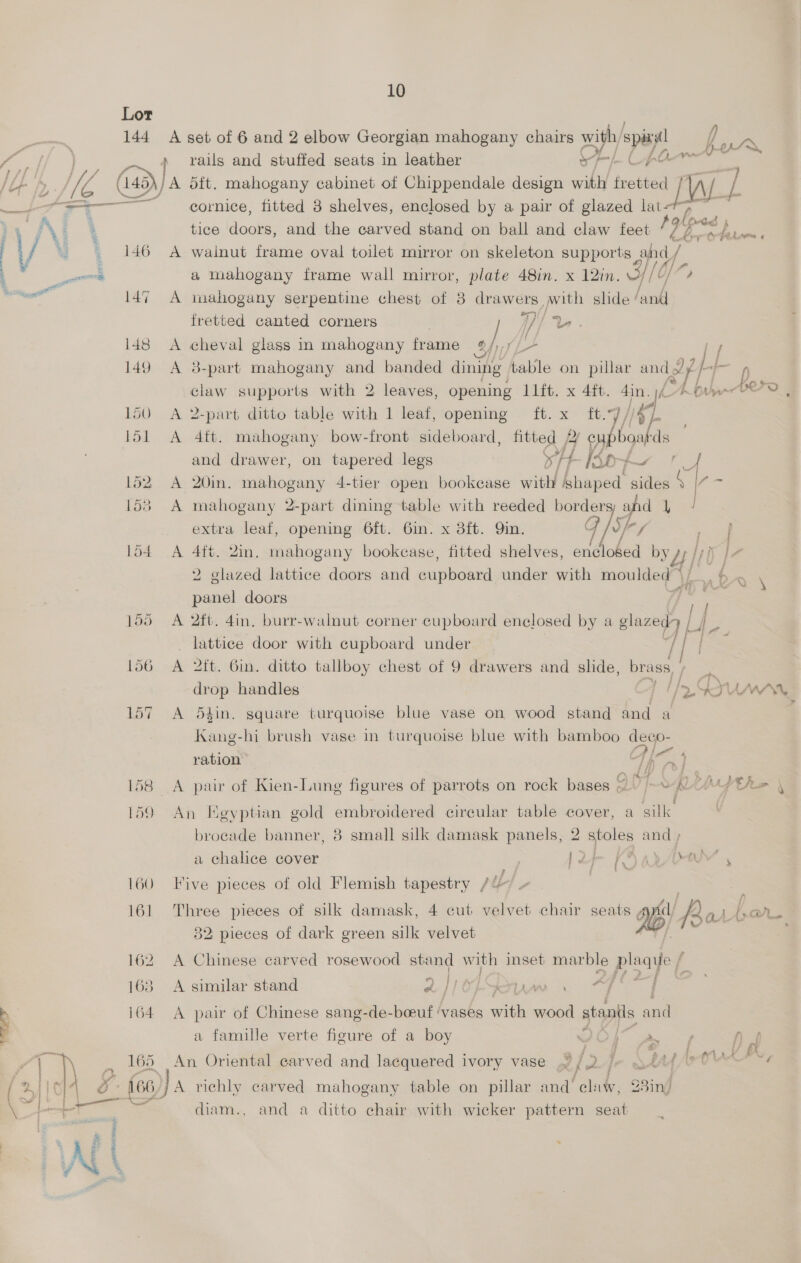 10
Lot
144 A set of 6 and 2 elbow Georgian mahogany chairs with spiral
rails and stuffed seats in leather
145 A 5ft. mahogany cabinet of Chippendale design with fretted
cornice, fitted 3 shelves, enclosed by a pair of glazed lat-
tice doors, and the carved stand on ball and claw feet
146 A walnut frame oval toilet mirror on skeleton supports and
a mahogany frame wall mirror, plate 48in. x 12in.
147 A mahogany serpentine chest of 3 drawers with slide and
fretted canted corners
148 A cheval glass in mahogany frame
149 A 3-part mahogany and banded dining table on pillar and
claw supports with 2 leaves, opening 11ft. x 4ft. 4in.
150 A 2-part ditto table with 1 leaf, opening ft. x ft.
151 A 4ft. mahogany bow-front sideboard, fitted 2 cupboards
and drawer, on tapered legs
152 A 20in. mahogany 4-tier open bookcase with shaped sides
153 A mahogany 2-part dining table with reeded borders and 1
extra leaf, opening 6ft. 6in. x 3ft. 9in.
154 A 4ft. 2in. mahogany bookcase, fitted shelves, enclosed by
2 glazed lattice doors and cupboard under with moulded
panel doors
155 A 2ft. 4in. burr-walnut corner cupboard enclosed by a glazed
lattice door with cupboard under
156 A 2ft. 6in. ditto tallboy chest of 9 drawers and slide, brass
drop handles
157 A 5½in. square turquoise blue vase on wood stand and a
Kang-hi brush vase in turquoise blue with bamboo deco-
ration
158 A pair of Kien-Lung figures of parrots on rock bases
159 An Egyptian gold embroidered circular table cover, a silk
brocade banner, 3 small silk damask panels, 2 stoles and
a chalice cover
160 Five pieces of old Flemish tapestry
161 Three pieces of silk damask, 4 cut velvet chair seats and
32 pieces of dark green silk velvet
162 A Chinese carved rosewood stand with inset marble plaque
163 A similar stand
164 A pair of Chinese sang-de-bœuf vases with wood stands and
a famille verte figure of a boy
165 An Oriental carved and lacquered ivory vase
166 A richly carved mahogany table on pillar and claw, 23in.
diam., and a ditto chair with wicker pattern seat